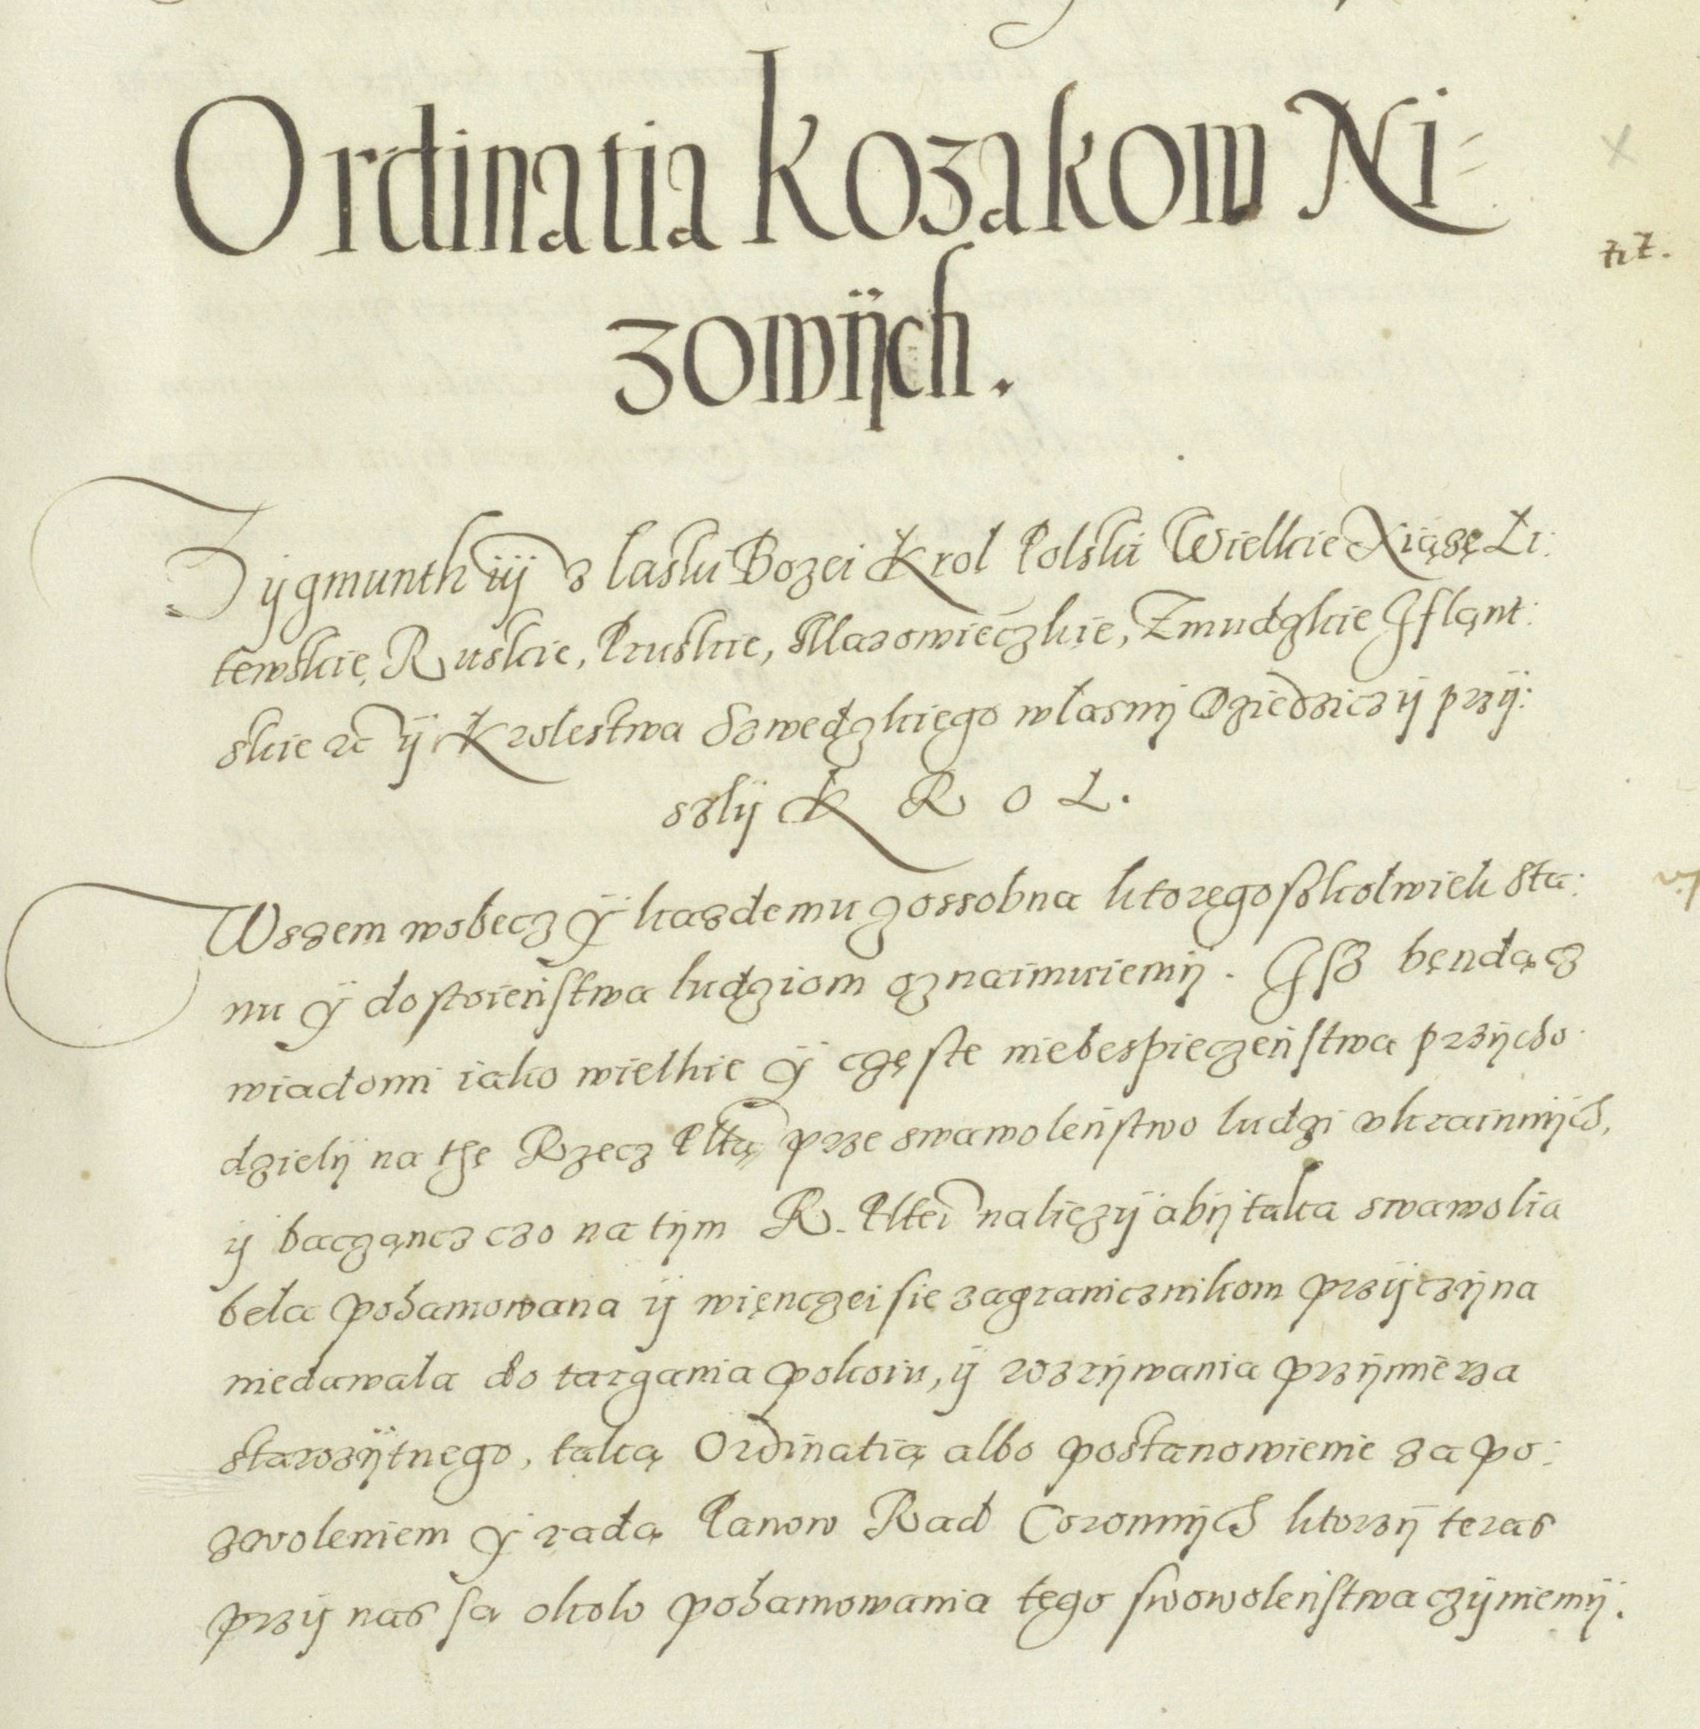 Ordinatia Kozakow Ni=
zowÿch.
Zÿgmunth iij z laski Bozei Krol Polski Wielkie Xiązę Li:
tewskie, Ruskie, Pruskie, Mazowieczkie, Zmudzkie Iflant:
skie etc ÿ Krolestwa Szwedzkiego własnÿ Dziedzicz ÿ przÿ:
szlÿ K R O L.
Wszem wobecz ÿ kazdemu zossobna ktoregoszkolwiek sta:
nu ÿ dostoieństwa ludziom oznaimuiemÿ. Isz będącz
wiadomi iako wielkie ÿ częste niebespieczeństwa przÿcho
dzielÿ na thę Rzecz Pltą prze swawoleństwo ludzi vkrainnÿch,
ÿ baczącz czo na tÿm R. Pltei należÿ abÿ taka swawolia
beła pohamowana ÿ więnczei się zagranicznikom przÿczÿna
niedawała do targania pokoiu, ÿ rozrÿwania przÿmierza
starozÿtnego, taką Ordinatią albo postanowienie za po:
zwoleniem ÿ radą Panow Rad Coronnÿch ktorzÿ teras
przÿ nas sa około pohamowania tego swowoleństwa czÿniemÿ.